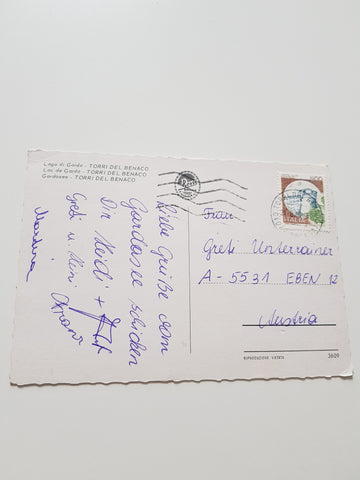 Lago di Garda - TORRI DEL BENACO
Lac de Garda - TORRI DEL BENACO
Gardasee - TORRI DEL BENACO
Liebe Grüße vom
Gardasee schicken
Dir Heidi +
Greti u.
Martina
ITALIA
Frau
Greti Unterrainer
A - 5531 EBEN 12
Austria
RIPRODUZIONE VIETATA
3609